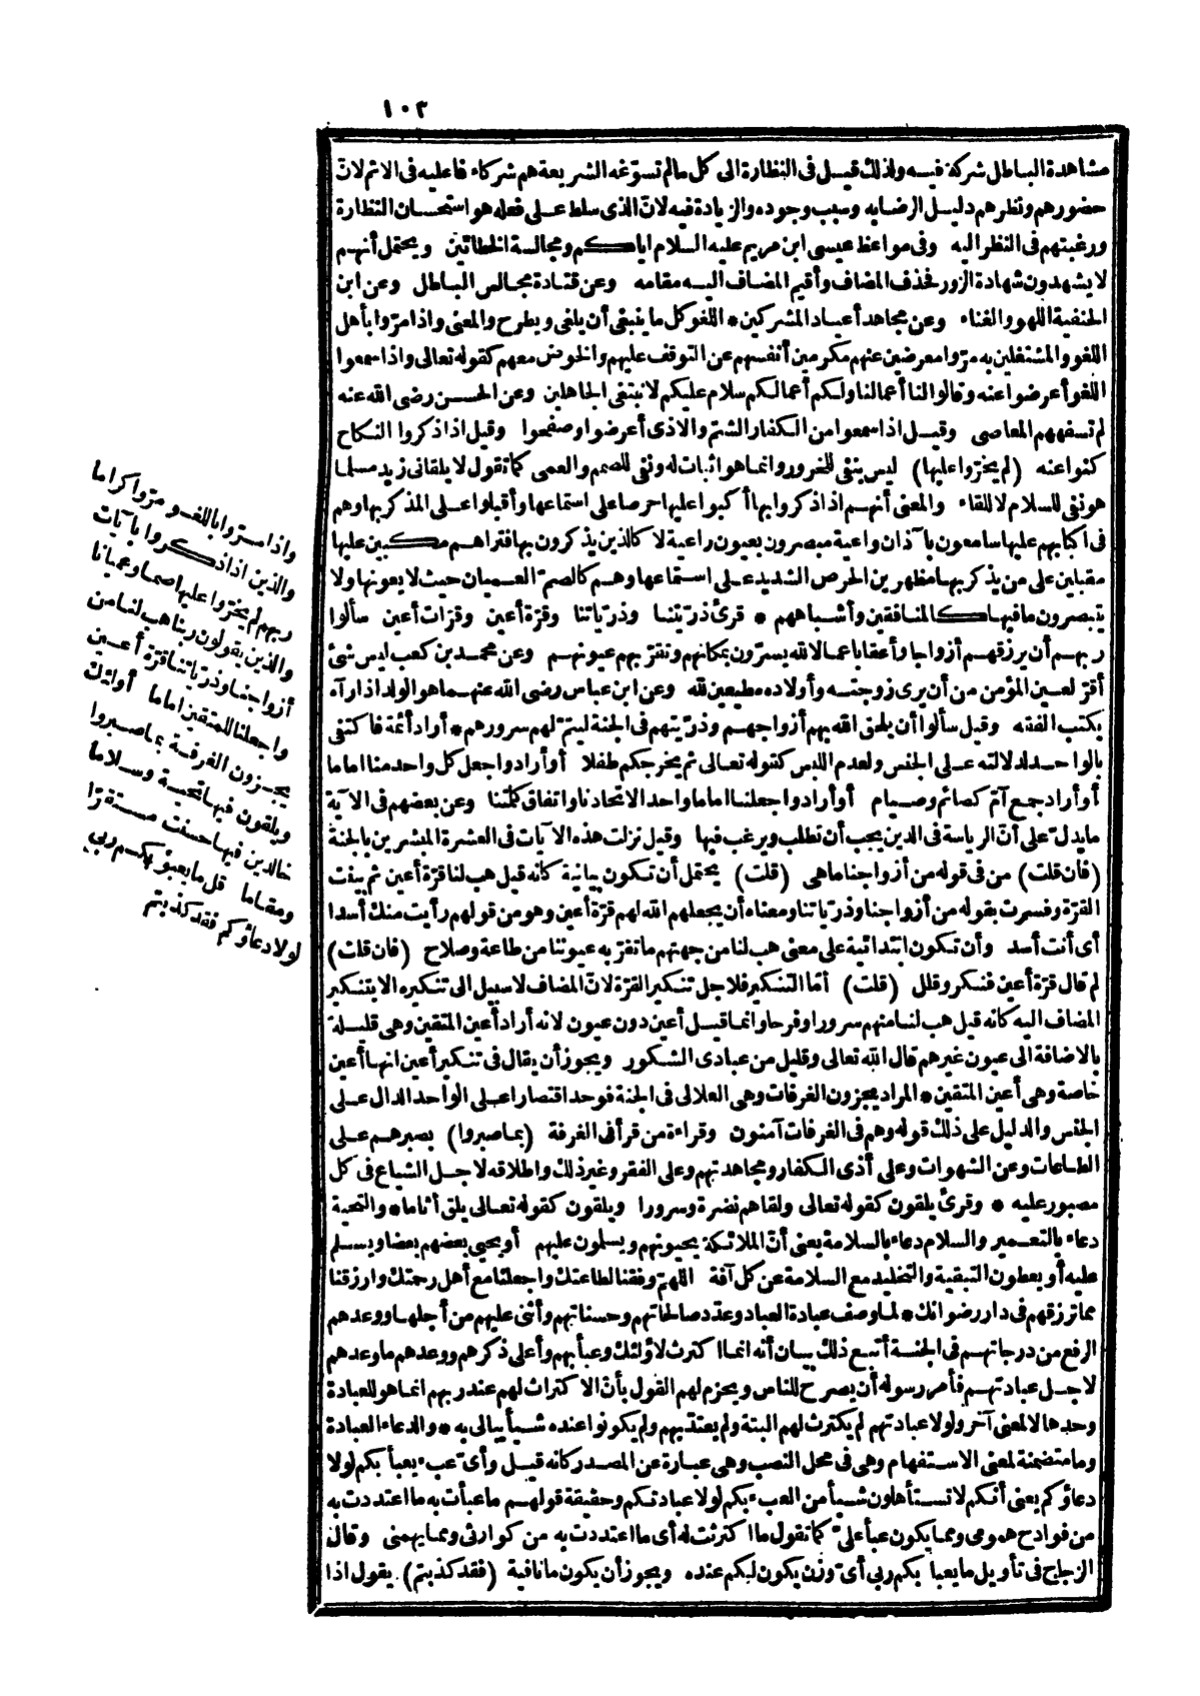 ١٠٣
مشاهدة الباطل شركة فيه ولذلك قيل فى النظارة الى كل مالم تسوّغه الشريعة هم شركاء فاعليه فى الاثم لانّ
حضورهم ونظرهم دليل الرضابه وسبب وجوده والزيادة فيه لانّ الذى سلط على فعله هو استحسان النظارة
ورغبتهم فى النظر اليه وفى مواعظ عيسى ابن مريم عليه السلام اياكم ومجالسة الخطائين ويحتمل أنهم
لا يشهدون شهادة الزور فحذف المضاف وأقيم المضاف اليه مقامه وعن قتادة مجالس الباطل وعن ابن
الحنفية اللهو والغناء وعن مجاهد أعياد المشركين * اللغو كل ما ينبغى أن يلغى ويطرح والمعنى واذا مرّوا بأهل
اللغو والمشتغلين به مرّوا معرضين عنهم مكرمين أنفسهم عن التوقف عليهم والخوض معهم كقوله تعالى واذا سمعوا
اللغو أعرضوا عنه وقالوا لنا أعمالنا ولكم أعمالكم سلام عليكم لا نبتغى الجاهلين وعن الحسن رضى الله عنه
لم تسفههم المعاصى وقيل اذا سمعوا من الكفار الشتم والاذى أعرضوا وصفحوا وقيل اذا ذكروا النكاح
كنوا عنه (لم يخرّوا عليها) ليس بنفى للخرور وانما هو اثبات له ونفى للصمم والعمى كما تقول لا يلقانى زيد مسلما
هو نفى للسلام لا للقاء والمعنى أنهم اذا ذكروا بها أكبوا عليها حرصا على استماعها وأقبلوا على المذكر بها وهم
فى اكبابهم عليها سامعون بآذان واعية مبصرون بعيون راعية لا كالذين يذكرون بها فتراهم مكبين عليها
مقبلين على من يذكر بها مظهرين الحرص الشديد على استماعها وهم كالصمّ العميان حيث لا يعونها ولا
يتبصرون ما فيها كالمنافقين وأشباههم * قرئ ذرّيتنا وذرّياتنا وقرّة أعين وقرّات أعين سألوا
ربهم أن يرزقهم أزواجا وأعقابا عمالا لله يسرّون بمكانهم وتقرّ بهم عيونهم وعن محمد بن كعب ليس شئ
أقرّ لعين المؤمن من أن يرى زوجته وأولاده مطيعين لله وعن ابن عباس رضى الله عنهما هو الولد اذا رآه
يكتب الفقه وقيل سألوا أن يلحق الله بهم أزواجهم وذرّيتهم فى الجنة ليتمّ لهم سرورهم * أراد أئمة فاكتفى
بالواحد لدلالته على الجنس ولعدم اللبس كقوله تعالى ثم يخرجكم طفلا أو أرادوا جعل كل واحد منا اماما
أو أراد جمع آمّ كصائم وصيام أو أرادوا جعلنا اماما واحدا لاتحادنا واتفاق كلمتنا وعن بعضهم فى الآية
ما يدلّ على أنّ الرياسة فى الدين يجب أن تطلب ويرغب فيها وقيل نزلت هذه الآيات فى العشرة المبشرين بالجنة
(فان قلت) من فى قوله من أزواجنا ما هى (قلت) يحتمل أن تكون بيانية كأنه قيل هب لنا قرّة أعين ثم بينت
القرّة وفسرت بقوله من أزواجنا وذرّياتنا ومعناه أن يجعلهم الله لهم قرّة أعين وهو من قولهم رأيت منك أسدا
أى أنت أسد وأن تكون ابتدائية على معنى هب لنا من جهتهم ما تقرّ به عيوننا من طاعة وصلاح (فان قلت)
لم قال قرّة أعين فنكر وقلل (قلت) أمّا التنكير فلاجل تنكير القرّة لانّ المضاف لا سبيل الى تنكيره الا بتنكير
المضاف اليه كانه قيل هب لنا منهم سرورا وفرحا وانما قيل أعين دون عيون لانه أراد أعين المتقين وهى قليلة
بالاضافة الى عيون غيرهم قال الله تعالى وقليل من عبادى الشكور ويجوز أن يقال فى تنكير أعين انها أعين
خاصة وهى أعين المتقين * المراد يجزون الغرفات وهى العلالى فى الجنة فوحد اقتصارا على الواحد الدال على
الجنس والدليل على ذلك قوله وهم فى الغرفات آمنون وقراءة من قرأ فى الغرفة (بما صبروا) بصبرهم على
الطاعات وعن الشهوات وعلى أذى الكفار ومجاهدتهم وعلى الفقر وغير ذلك واطلاقه لاجل الشياع فى كل
مصبور عليه * وقرئ يلقون كقوله تعالى ولقاهم نضرة وسرورا ويلقون كقوله تعالى يلق أثاما * والتحية
دعاء بالتعمير والسلام دعاء بالسلامة يعنى أنّ الملائكة يحيونهم ويسلمون عليهم أو يحيى بعضهم بعضا ويسلم
عليه أو يعطون التبقية والتخليد مع السلامة عن كل آفة اللهمّ وفقنا لطاعتك واجعلنا مع أهل رحمتك وارزقنا
مما ترزقهم فى دار رضوانك * لما وصف عبادة العباد وعدد صالحاتهم وحسناتهم وأثنى عليهم من أجلها ووعدهم
الرفع من درجاتهم فى الجنة أتبع ذلك ببيان أنه انما اكترث لاولئك وعبأ بهم وأعلى ذكرهم ووعدهم ما وعدهم
لاجل عبادتهم فأمر رسوله أن يصرح للناس ويجزم لهم القول بأنّ الاكتراث لهم عند ربهم انما هو للعبادة
وحدها لا لمعنى آخر ولولا عبادتهم لم يكترث لهم البتة ولم يعتدّ بهم ولم يكونوا عنده شيأ يبالى به * والدعاء العبادة
وما متضمنة لمعنى الاستفهام وهى فى محل النصب وهى عبارة عن المصدر كانه قيل وأىّ عبء يعبأ بكم لولا
دعاؤكم يعنى أنكم لا تستأهلون شيأ من العبء بكم لولا عبادتكم وحقيقة قولهم ما عبأت به ما اعتددت به
من فوادح همومى ومما يكون عبأ علىّ كما تقول ما اكترثت له أى ما اعتددت به من كوارثى ومما يهمنى وقال
الزجاج فى تأويل ما يعبأ بكم ربى أىّ وزن يكون لكم عنده ويجوز أن يكون ما نافية (فقد كذبتم) يقول اذا
واذا مرّوا باللغو مرّوا كراما
والذين اذا ذكروا بآيات
ربهم لم يخرّوا عليها صما وعميانا
والذين يقولون ربنا هب لنا من
أزواجنا وذرّياتنا قرّة أعين
واجعلنا للمتقين اماما أولئك
يجزون الغرفة بما صبروا
ويلقون فيها تحية وسلاما
خالدين فيها حسنت مستقرّا
ومقاما قل ما يعبؤ بكم ربى
لولا دعاؤكم فقد كذبتم